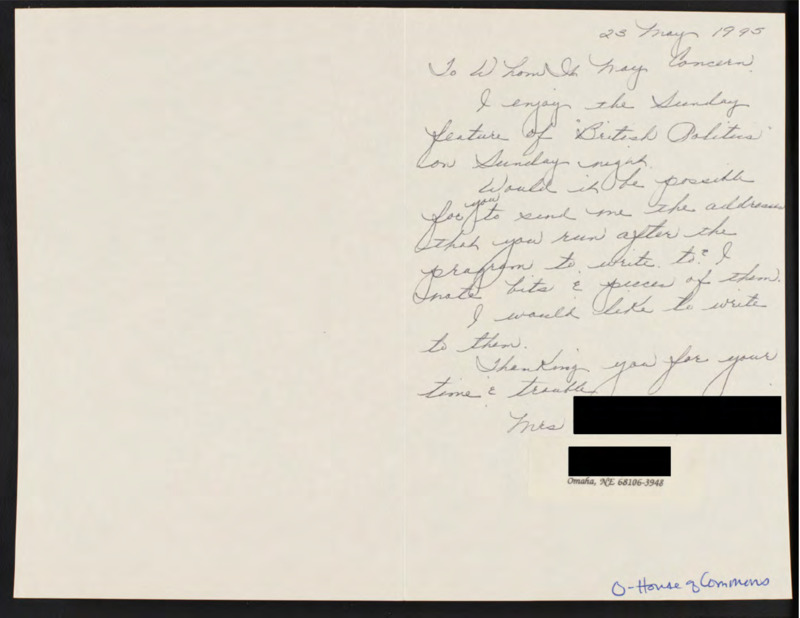 23 May 1995
To Whom It May Concern.
I enjoy the Sunday
feature of "British Politics"
on Sunday night.
Would it be possible
you
for to send me the addresses
that you run after the
program to write to? I
note bits & pieces of them.
I would like to write
to them.
Thanking you for your
time & trouble
Mrs
Omaha, NE 68106-3948
O-House of Commons